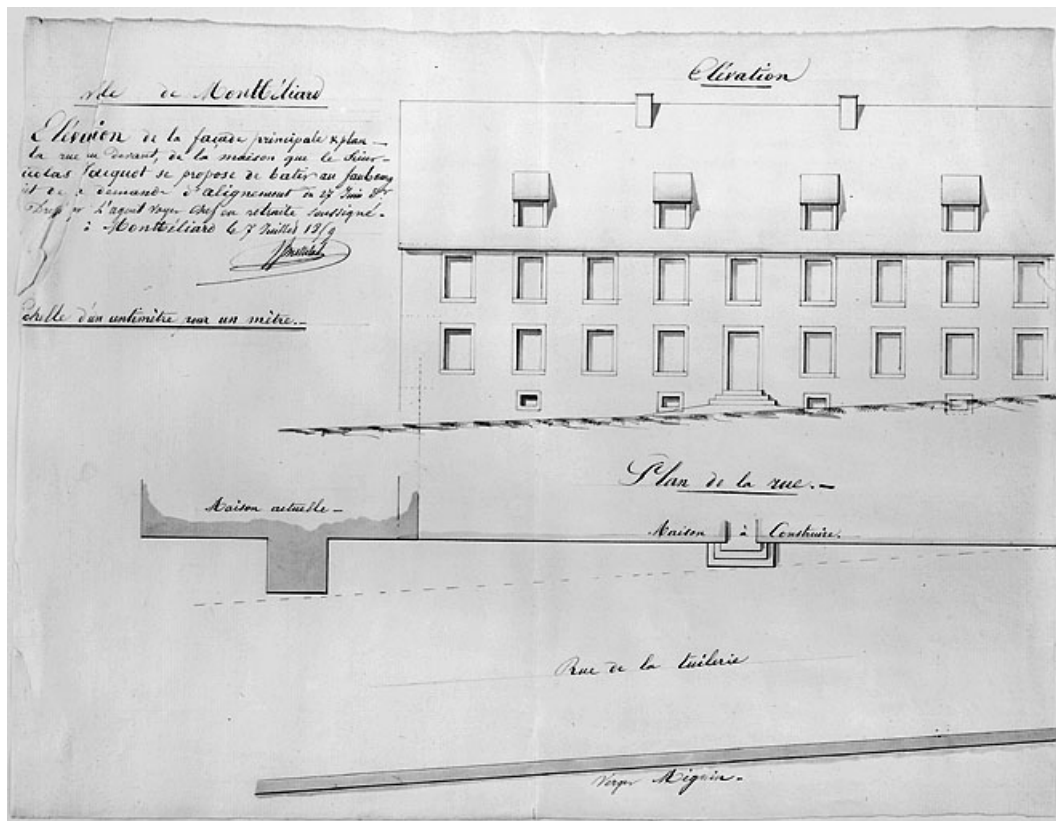 de Montbéliard
Elévation de la façade principale & plan
la rue au devant, de la maison que le sieur
Jacquot se propose de batir au faubourg
et de demande d'alignement du 27 Juin
L'agent voyer chef en retraite soussigné.
à Montbéliard le 7 Juillet 18
Echelle d'un centimètre pour un mètre.
Elévation
Plan de la rue.
Maison actuelle
Maison à Construire.
Rue de la tuilerie
Verger Mignin.